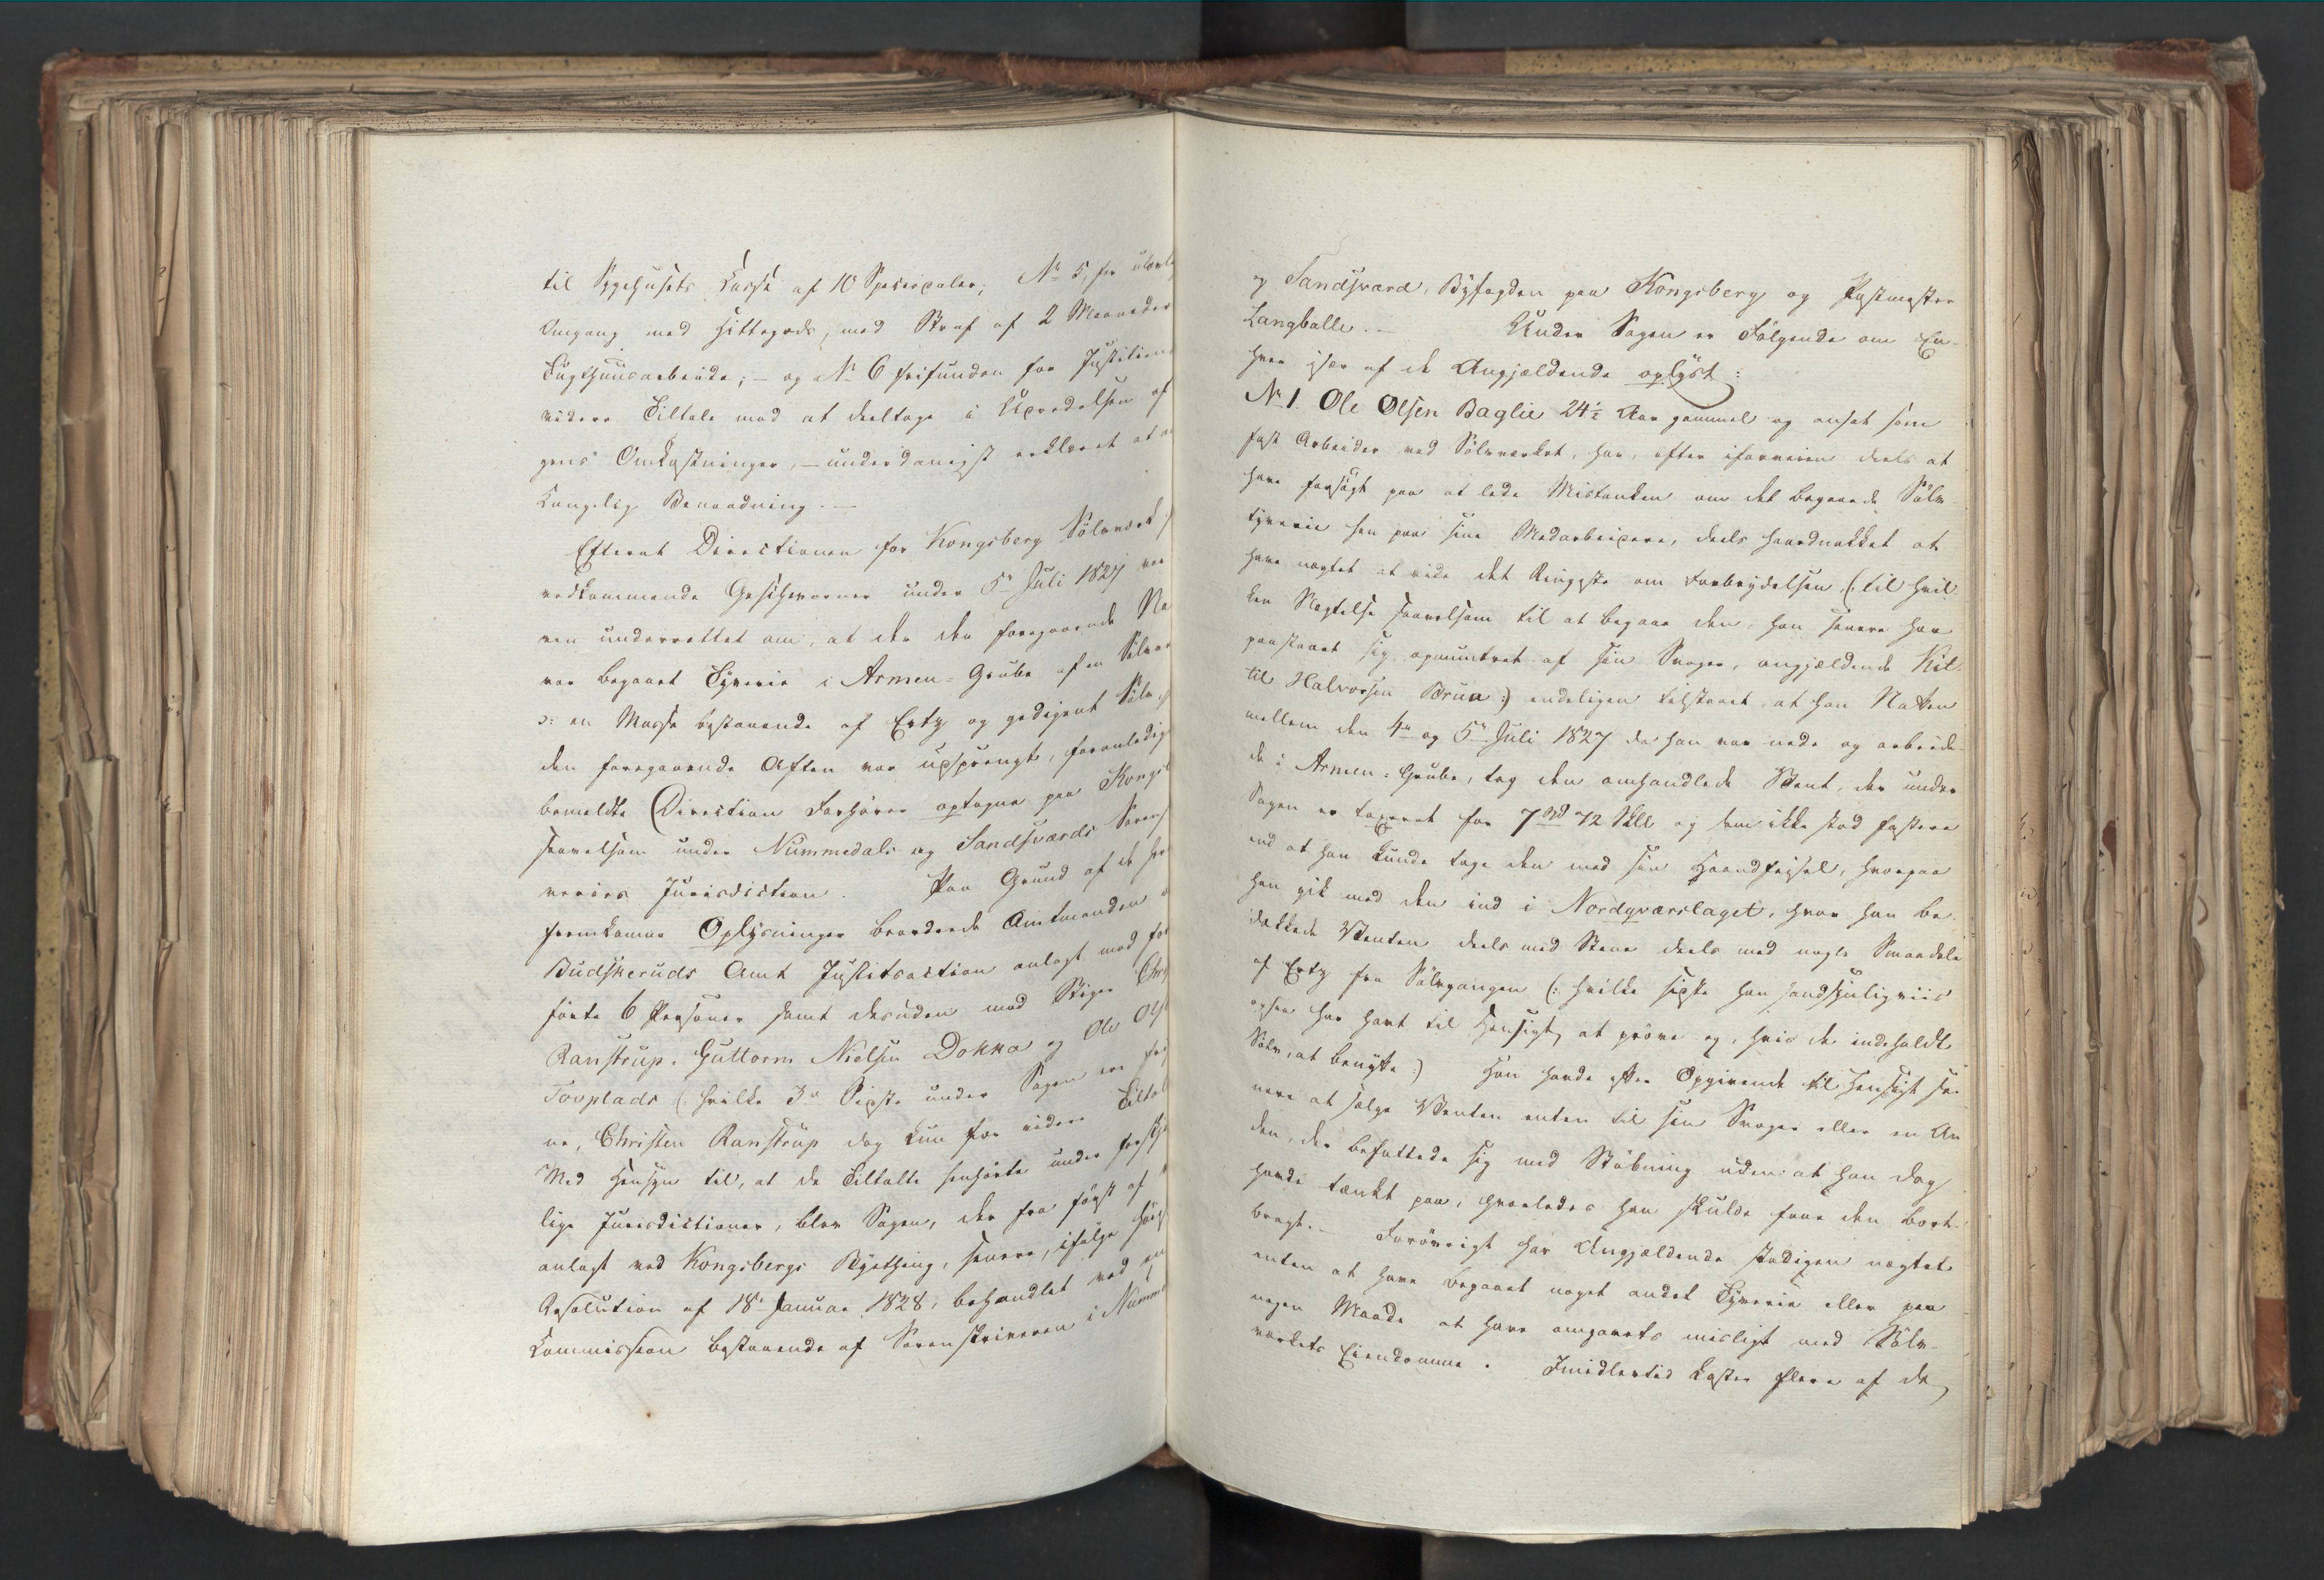 til Sygehusets Kasse af 10 Speciedaler; No 5, for ulovlig
Omgang med Hittegods, med Straf af 2 Maaneders
Tugthuusarbeide; – og No 6 frifunden for Justitiens
videre Tiltale mod at deeltage i Udredelsen af
gens Omkostninger, – underdanigst erklæret at
Kongelig Benaadning. –
Efterat Directionen for Kongsberg Sölvværk
vedkommende Geschworner under 5te Juli 1827 var
ven underrettet om, at der den foregaaende Na
var begaaet Tyverie i Armen-Grube af en
ɔ: en Masse bestaaende af Ertz og gedigent Sölv
den foregaaende Aften var udsprengt, foranledig
bemeldte Direction Forhörer optagne paa Kongsb
saavelsom under Nummedals og Sandsværds Soren
veries Jurisdiction. Paa Grund af de
fremkomne Oplysninger beordrede Amtmanden
Budskeruds Amt Justitsaction anlagt mod
förte 6 Personer samt desuden mod Stiger Chr
Ranstrup, Guttorm Nielsen Dokka og Ole Ols
Tovplads (hvilke 3de Sidste under Sagen ere fri
ne, Christen Ranstrup dog kun for videre Tiltal
Med Hensyn til, at de Tiltalte henhörte under forskj
lige Jurisdictioner, blev Sagen, der fra först af
anlagt ved Kongsbergs Bything, senere, ifölge höies
Resolution af 18de Januar 1828, behandlet ved en
Commission bestaaende af Sorenskriveren i Numme
og Sandsværd, Byfogden paa Kongsberg og Postmester
Langballe. – Under Sagen er Fölgende om En-
hver især af de Angjældende oplyst:
No 1. Ole Olsen Baglie 24½ Aar gammel og ansat som
fast Arbeider ved Sölvværket, har, efter iforveien deels at
have forsögt paa at lede Mistanken om det begaaede Sölv-
tyverie hen paa sine Medarbeidere, deels haardnakket at
have nægtet at vide det Ringeste om Forbrydelsen, (: til hvil-
ken Nægtelse saavelsom til at begaae den, han senere har
paastaaet sig opmuntret af sin Svoger, angjældende Kit-
til Halvorsen Brua :) endeligen tilstaaet, at han Natten
mellem den 4de og 5te Juli 1827 da han var nede og arbeide-
de i Armen-Grube, tog den omhandlede Stent, der under
Sagen er taxeret for 7 Spd 72 Skill og som ikke stod fastere
end at han kunde tage den med sin Haandfeisel, hvorpaa
han gik med den ind i Nordqværslaget, hvor han be-
dækkede Stenten deels med Stene deels med nogle Smaadele
af Ertz fra Sölvgangen (: hvilke sidste han sandsynligviis
ogsaa har havt til Hensigt at pröve og, hvis de indeholdt
Sölv, at benytte :) Han havde efter Opgivende til Hensigt se-
nere at sælge Stenten enten til sin Svoger eller en An-
den, der befattede sig med Stöbning uden at han dog
havde tænkt paa, hvorledes han skulde faae den bort-
bragt. – Forövrigt har Angjældende stadigen nægtet
enten at have begaaet noget andet Tyverie eller paa
nogen Maade at have omgaaets misligt med Sölv-
værkets Eiendomme. Imidlertid kaster flere af de